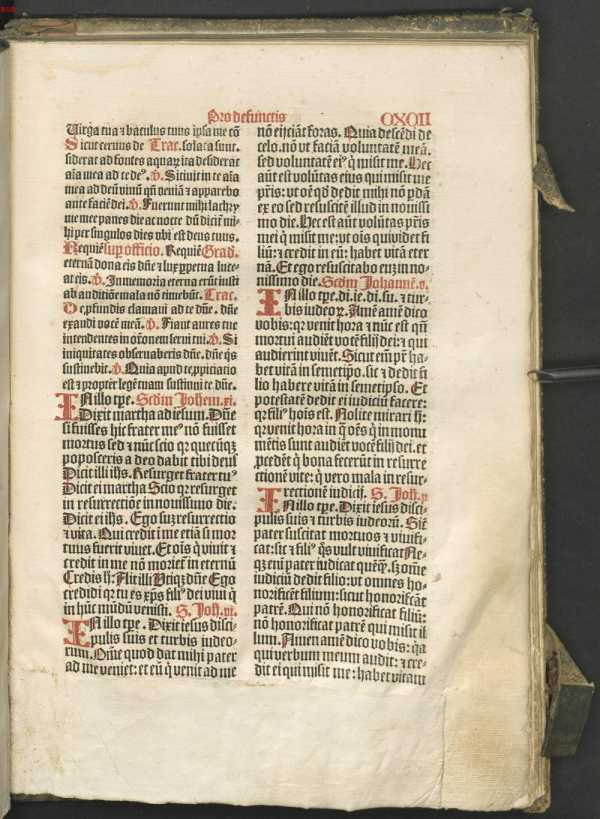 Pro defunctis CXCII
Virga tua ⁊ baculus tuus ipsa me cō
Sicut ceruus de Trac. solata sunt.
siderat ad fontes aquaꝝ ita desiderat
aīa mea ad te deꝰ. V. Sitiuit in te aīa
mea ad deū viuū qn̄ veniā ⁊ apparebo
ante faciē dei. V. Fuerunt mihi lachry
me mee panes die ac nocte dū dicit̄ mi⸗
hi per singulos dies vbi est deus tuus.
Requiē supͬ officio. Requiē Grad.
eternā dona eis dn̄e ⁊ lux ꝑpetua luce⸗
at eis. V. In memoria eterna erūt iusti
ab auditiōe mala nō timebūt. Trac.
De ꝓfundis clamaui ad te dn̄e. dn̄e
exaudi vocē meā. V. Fiant aures tue
intendentes in orōonem serui tui. V. Si
iniquitates obseruaberis dn̄e. dn̄e q̄s
sustinebit. V. Quia apud te ꝓpiciatio
est ⁊ propter legē tuam sustinui te dn̄e.
IN illo tp̄e. Scdm Johem. xi.
Dixit martha ad iesum. Dn̄e
si fuisses hic frater meꝰ nō fuisset
mortus sed ⁊ nūc scio qꝛ quecūqꝫ
poposceris a deo dabit tibi deus
Dicit illi ihs. Resurget frater tuꝰ
Dicit ei martha Scio qꝛ resurget
in resurrectiōe in nouissimo die.
Dicit ei ihs. Ego suꝫ resurrectio
⁊ vita. Qui credit ī me etiā si mor
tuus fuerit viuet. Et oīs q̄ viuit ⁊
credit in me nō morieť in eternū
Credis h̄? Ait illi Utiqꝫ dn̄e Ego
credidi qꝛ tu es xp̄s filiꝰ dei viui q̄
in hūc mūdū venisti. S. Joh. vi.
IN illo tp̄e. Dixit iesus disci⸗
pulis suis et turbis iudeo⸗
rum. Om̄e quod dat mihi pater
ad me veniet: et eū q̄ venit ad me
nō eijciāt foras. Quia descēdi de
celo. nō vt faciā voluntatē meā.
sed voluntatē eiꝰ q̄ misit me. Hec
aūt est volūtas eius qui misit me
pr̄is: vt oē qd̄ dedit mihi nō ꝑdā
ex eo sed resuscitē illud in nouissi
mo die. Hec est aūt volūtas pr̄is
mei q̄ misit me: vt oīs qui videt fi
liū: ⁊ credit in eū: habet vitā eter
nā. Et ego resuscitabo euꝫ in no⸗
uissimo die. Scdm Johannē. v.
IN illo tp̄e. di. ie. di. su. ⁊ tur⸗
bis iudeoꝝ. Amē amē dico
vobis: qꝛ venit hora ⁊ nūc est qn̄
mortui audiēt vocē filij dei: ⁊ qui
audierint viuēt. Sicut em̄ pr̄ ha⸗
bet vitā in semetipo. sic ⁊ dedit fi
lio habere vitā in semetipso. Et
potestatē dedit ei iudiciū facere:
qꝛ filiꝰ hoīs est. Nolite mirari h̄:
qꝛ venit hora in q̄ oēs q̄ in monu
mētis sunt audiēt vocē filij dei. et
ꝓcedēt q̄ bona fecerūt in resurre
ctionē vite: q̄ vero mala in resur⸗
rectionē indicij. S. Joh. v
IN illo tp̄e. Dixit iesus disci⸗
pulis suis ⁊ turbis iudeorū. Sic̄
pater suscitat mortuos ⁊ viuifi⸗
cat: sic ⁊ filiꝰ q̄s vult viuificat Ne⸗
qꝫ eni pater iudicat quēq̄. sꝫ om̄e
iudiciū dedit filio: vt omnes ho⸗
norificēt filium: sicut honorificāt
patrē. Qui nō honorificat filiū:
nō honorificat patrē qui misit il
lum. Amen amē dico vobis: q̄a
qui verbum meum audit: ⁊ cre⸗
dit ei qui misit me: habet vitam